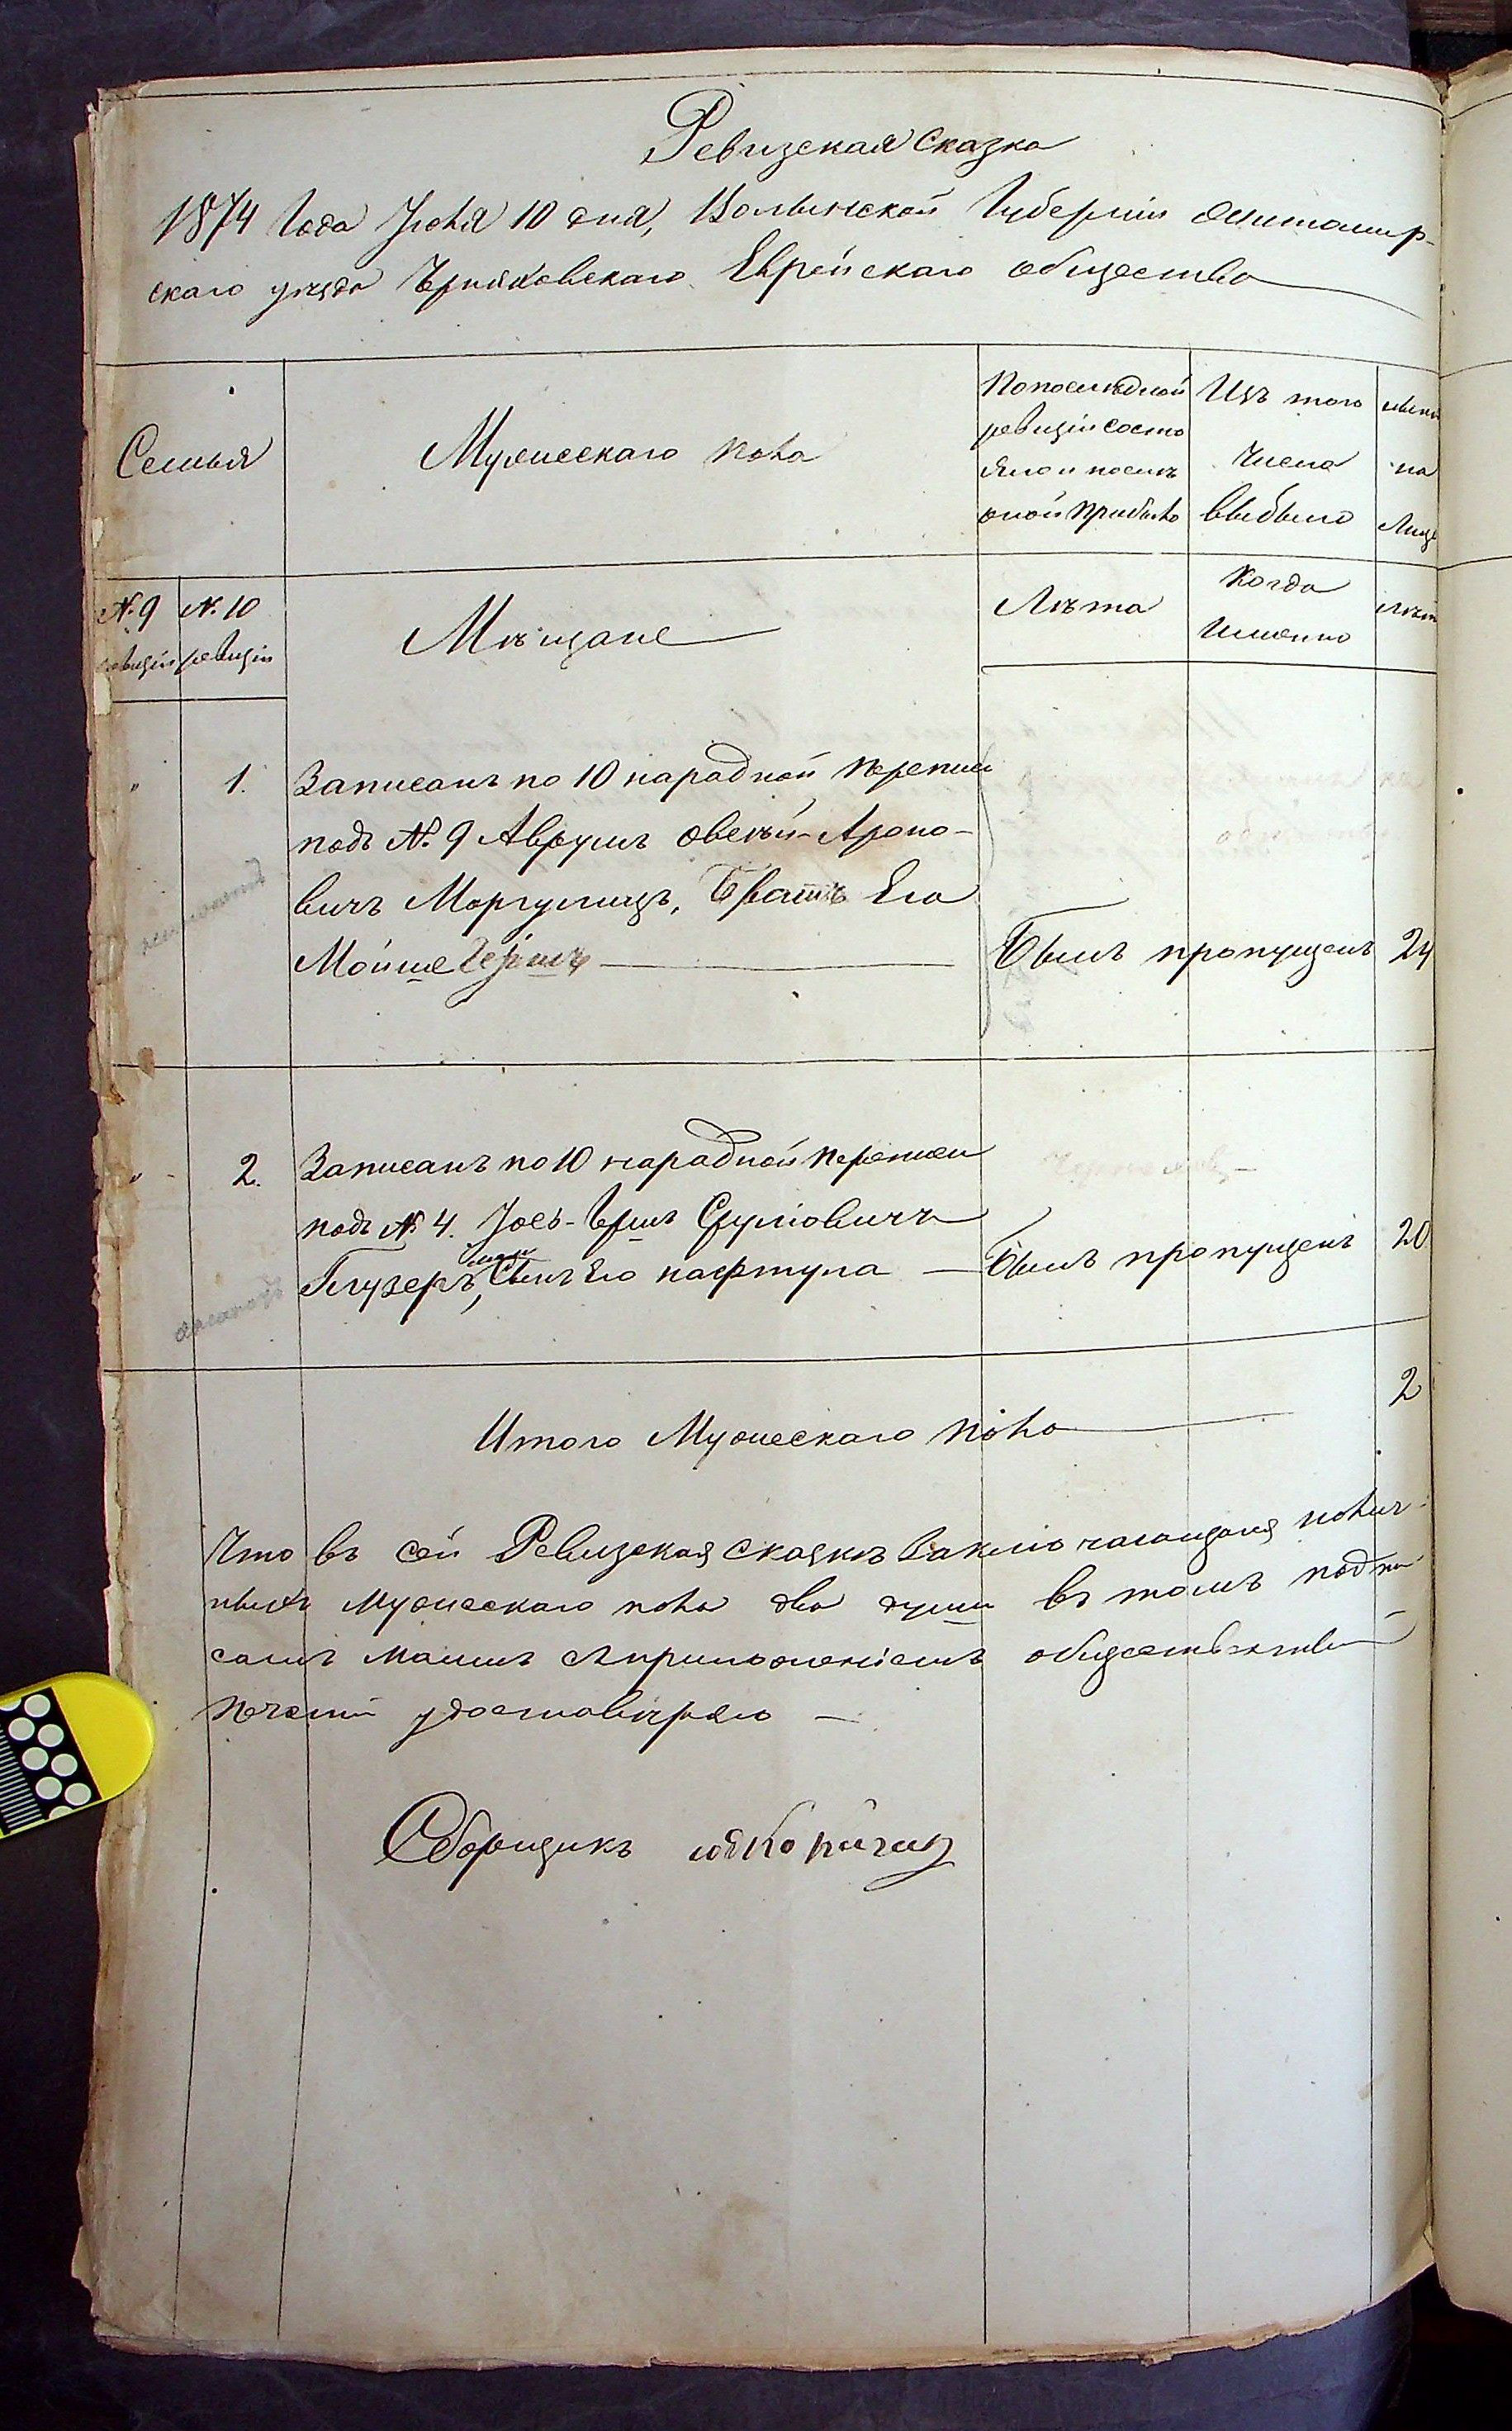 Ревизская Сказка
1874 Года Іюля 10 дня, Волынской Губерніи Житомир-
скаго уѣзда Черняховскаго Еврейскаго общества
Семья
Мужескаго пола
По послѣдной
ревизіи состо
яло и послѣ
оной прибыло
Изъ того
числа
выбыло
нынѣ
на
Лице
№ 9
ревизіи
№ 10
ревизіи
Мѣщане
Лѣта
Когда
Именно
лѣт
" 1. Записанъ по 10 народной переписи
подъ № 9 Аврумъ Овсѣй Ароно-
вичъ Моргулицъ, Братъ Его
Мойше Гершъ — Былъ пропущенъ 24
" 2. Записанъ по 10 народной переписи
подъ № 4. Іось-Гершъ Сруліовичъ
Глузеръ, Сынъ Его нафтула — Былъ пропущенъ 20
Итого Мужескаго пола — 2
Что въ сей Ревизская сказкѣ Заключающаяся
мужескаго пола два души въ томъ подпи
самъ съ приложеніемъ общественной
печати удостовѣряю —
Сборщикъ